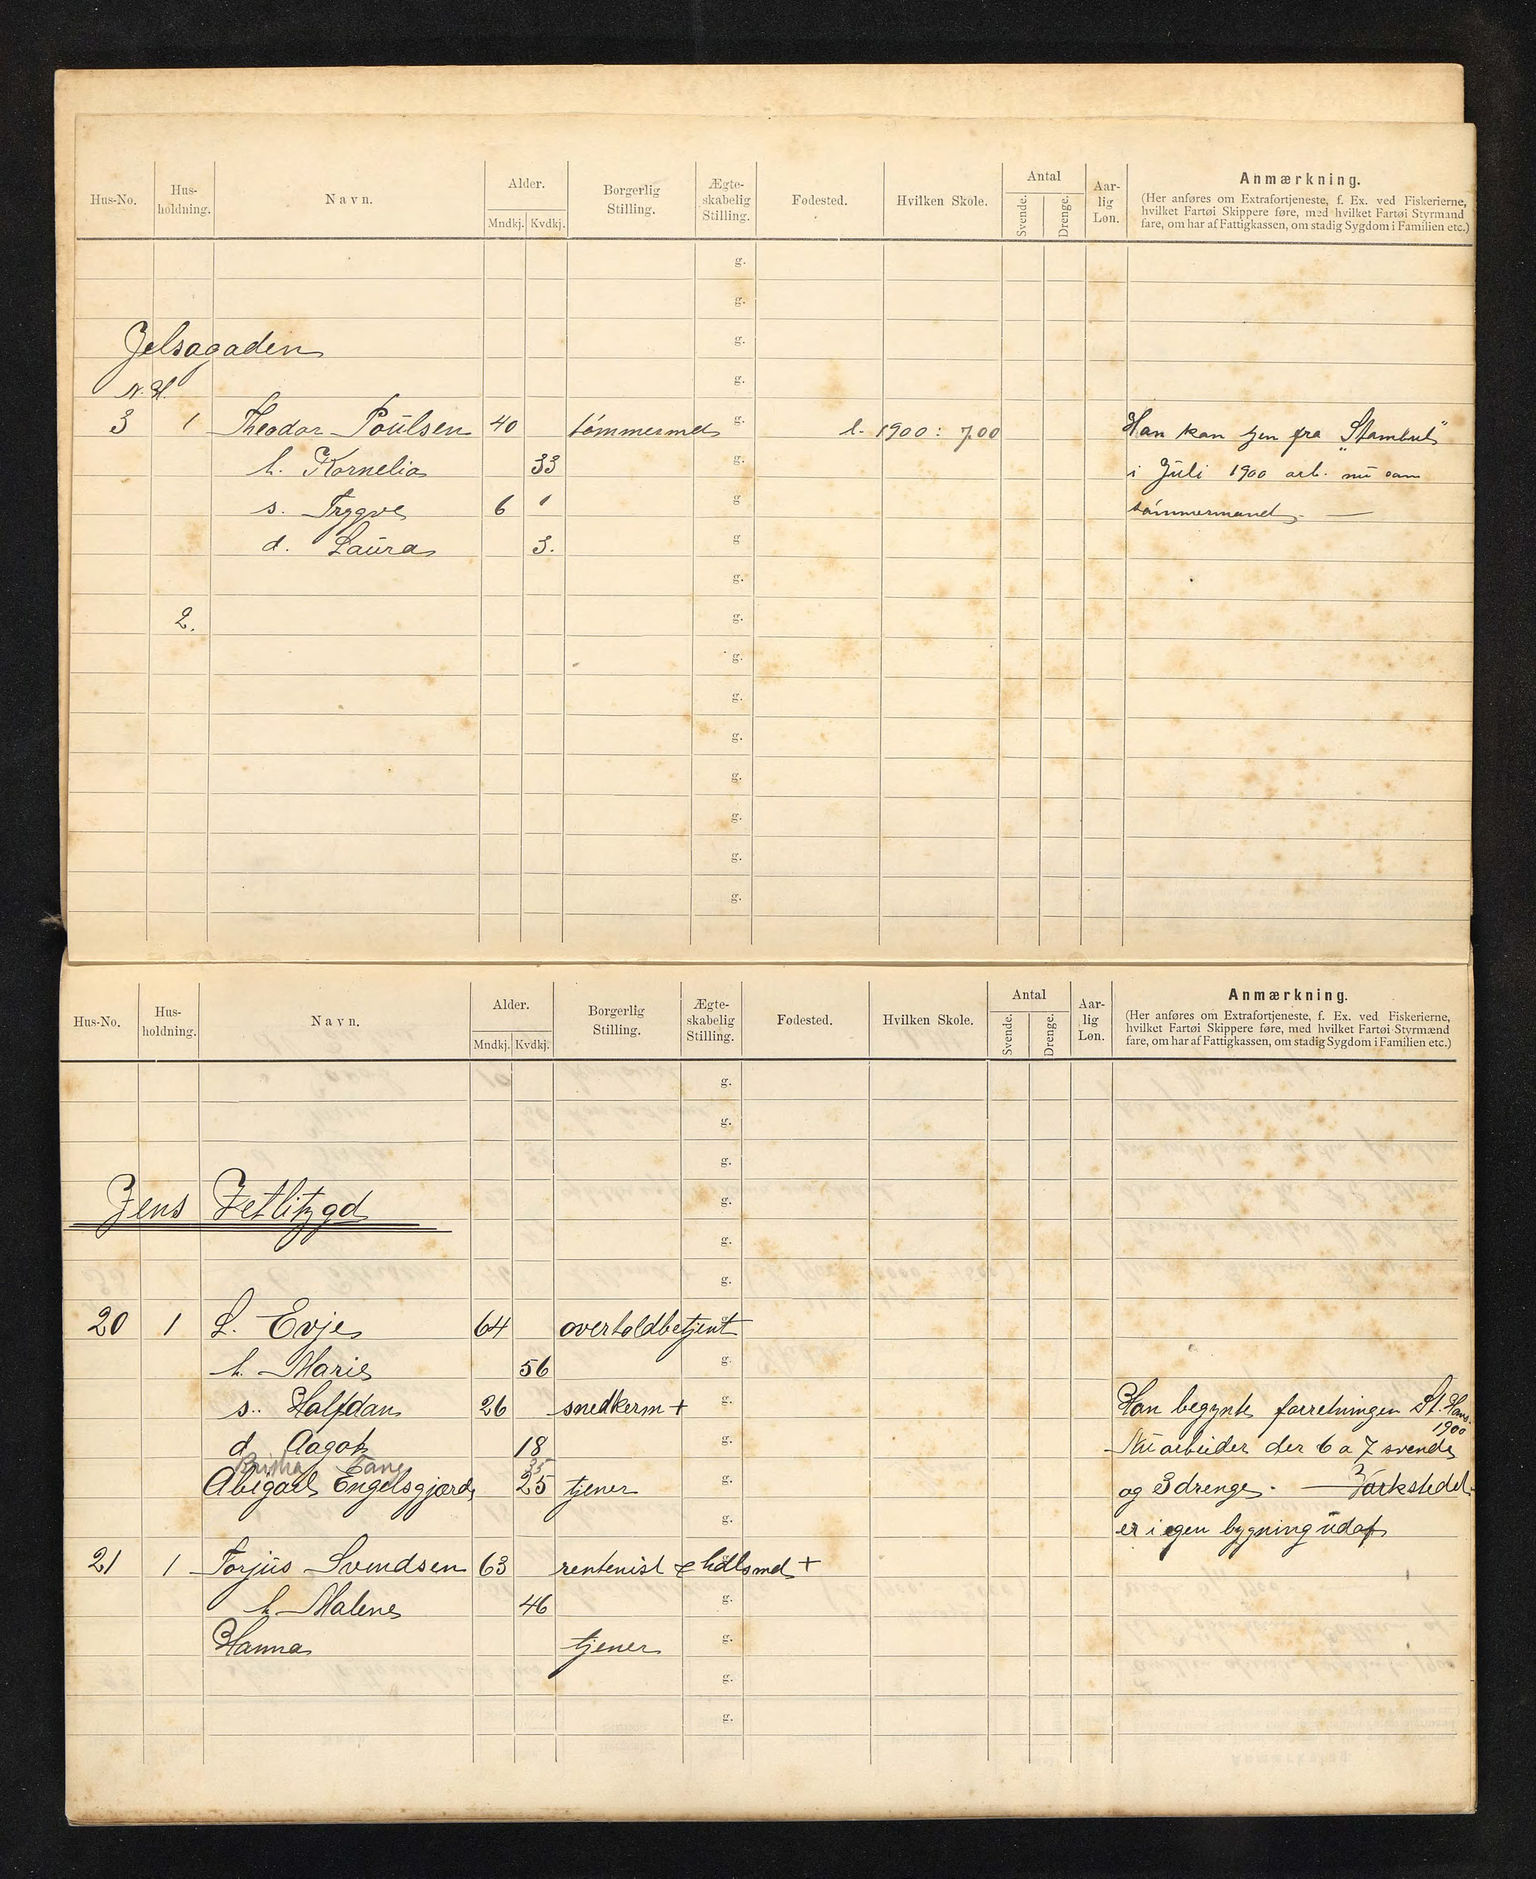 Hus-No. Hus-holdning. Navn. Alder. Mndkj. Kvdkj. Borgerlig Stilling. Ægte-skabelig Stilling. Fødested. Hvilken Skole. Antal Svende. Drenge. Aar-lig Løn. Anmærkning.
(Her anføres om Extrafortjeneste, f. Ex. ved Fiskerierne,
hvilket Fartøi Skippere føre, med hvilket Fartøi Styrmænd
fare, om har af Fattigkassen, om stadig Sygdom i Familien etc.)
g.
g.
Jelsagaden g.
N. H. g.
3 1 Theodor Poulsen 40 tømmermd g. l. 1900: 700 Han kom hjem fra "Stambul"
h. Kornelia 33 g. i Juli 1900 arb. nu som
s. Trygve 6 g. tømmermand. —
d. Laura 3. g.
g.
2. g.
g.
g.
g.
g.
g.
g.
g.
Hus-No. Hus-holdning. Navn. Alder. Mndkj. Kvdkj. Borgerlig Stilling. Ægte-skabelig Stilling. Fødested. Hvilken Skole. Antal Svende. Drenge. Aar-lig Løn. Anmærkning.
(Her anføres om Extrafortjeneste, f. Ex. ved Fiskerierne,
hvilket Fartøi Skippere føre, med hvilket Fartøi Styrmænd
fare, om har af Fattigkassen, om stadig Sygdom i Familien etc.)
g.
g.
g.
Jens Zetlitzgd g.
g.
g.
20 1 L. Evje 64 overtoldbetjent g.
h. Marie 56 g.
s. Halfdan 26 snedkerm + g. Han begynte forretningen St. Hans 1900
d Aagot 18 g. Nu arbeider der 6 a 7 svende
35
Abigael Engelsgjerd 25 tjener g. og 3 drenge. — Værkstedet
g. er i egen bygning udaf
21 1 Torjus Svendsen 63 rentenist & hdlsmd + g.
h. Malene 46 g.
Hanna tjener g.
g.
g.